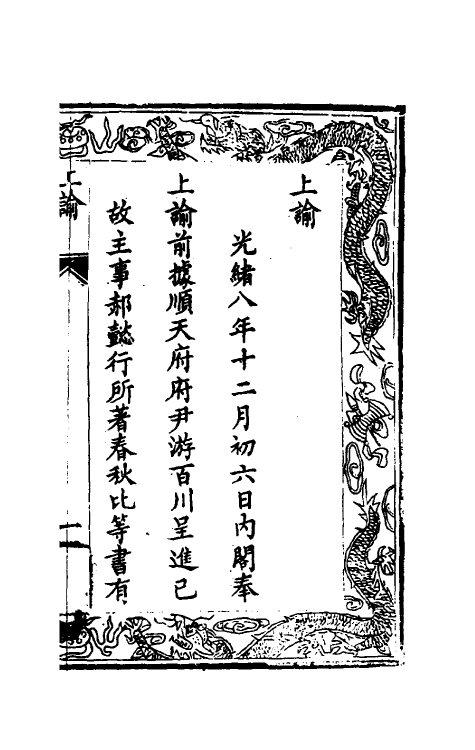 上諭
光緒八年十二月初六日內閣奉
上諭前據順天府府尹游百川呈進已
故主事郝懿行所著春秋比等書有
上諭
一